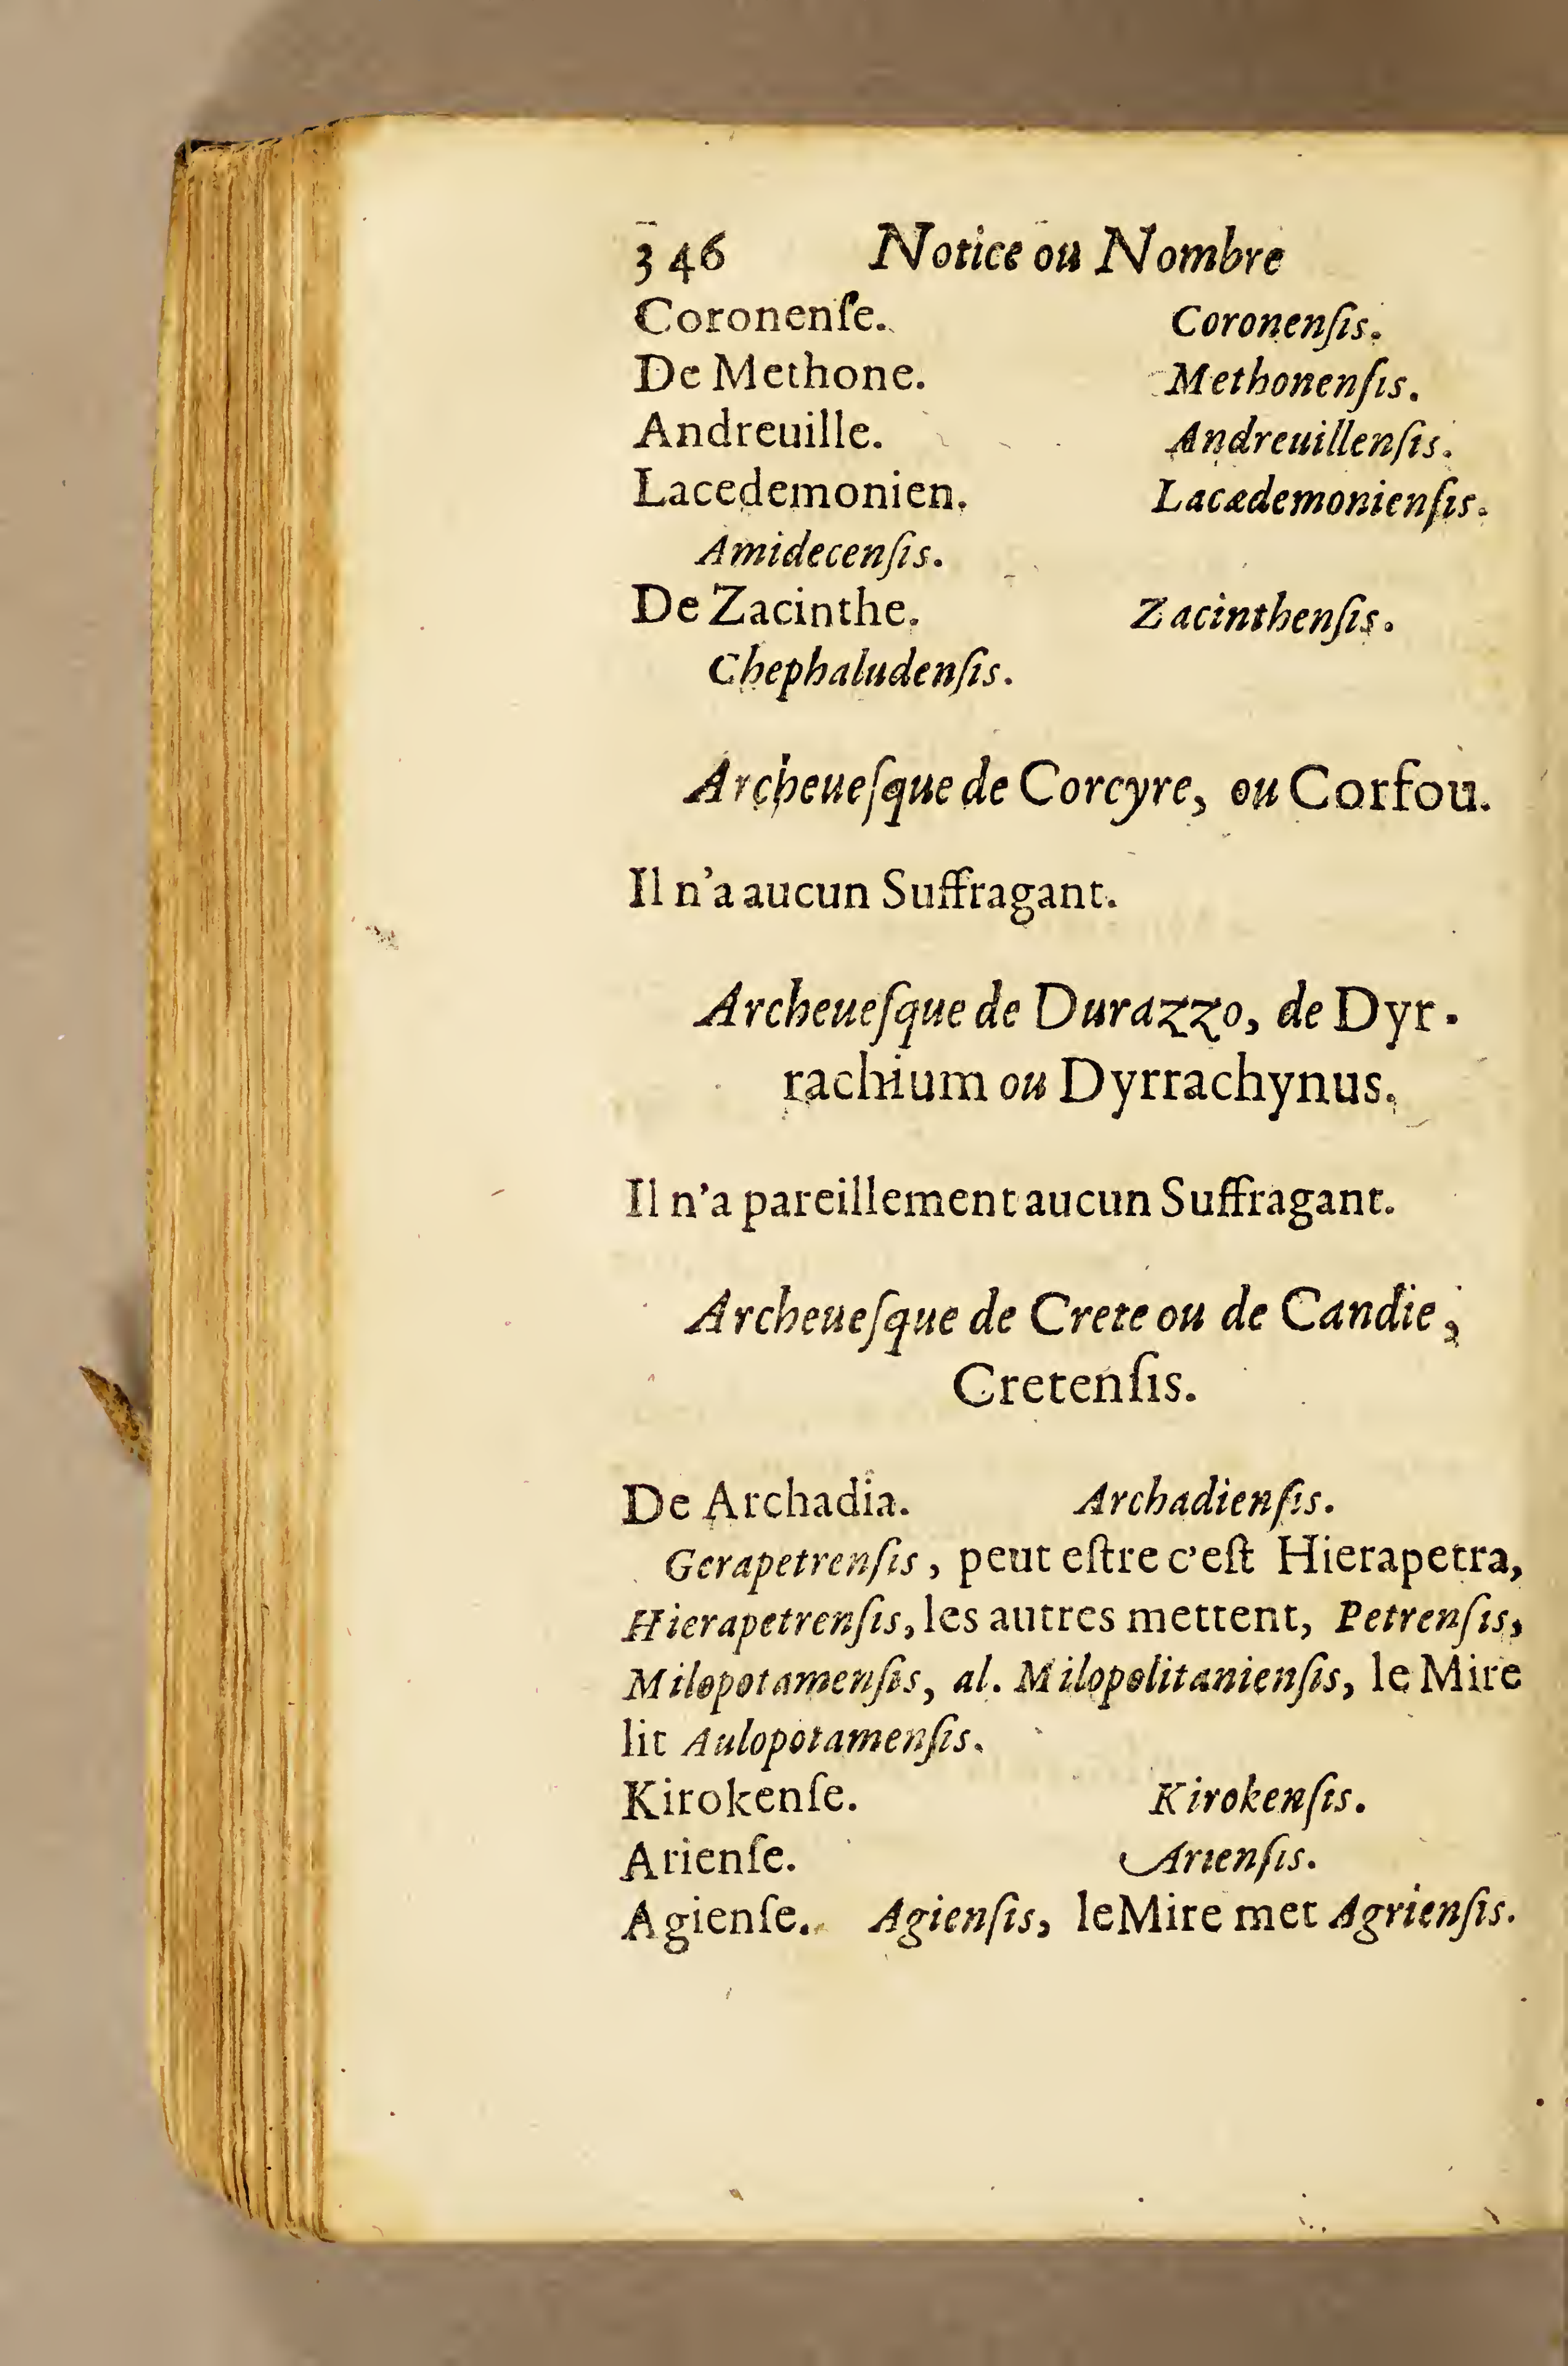 346 Notice ou Nombre
Coronenſe. Coronenſis.
De Methone. Methonenſis.
Andreuille. Andreuillenſis.
Lacedemonien. Lacædemonienſis.
Amidecenſis.
De Zacinthe. Zacinthenſis.
Chephaludenſis.
Archeueſque de Corcyre, ou Corfou.
Il n'a aucun Suffragant.
Archeueſque de Durazzo, de Dyr-
rachium ou Dyrrachynus.
Il n'a pareillement aucun Suffragant.
Archeueſque de Crete ou de Candie,
Cretenſis.
De Archadia. Archadienſis.
Gerapetrenſis, peut eſtre c'eſt Hierapetra,
Hierapetrenſis, les autres mettent, Petrenſis,
Milopotamenſis, al. Milopolitanienſis, le Mire
lit Aulopotamenſis.
Kirokenſe. Kirokenſis.
Arienſe. Arienſis.
Agienſe. Agienſis, le Mire met Agrienſis.